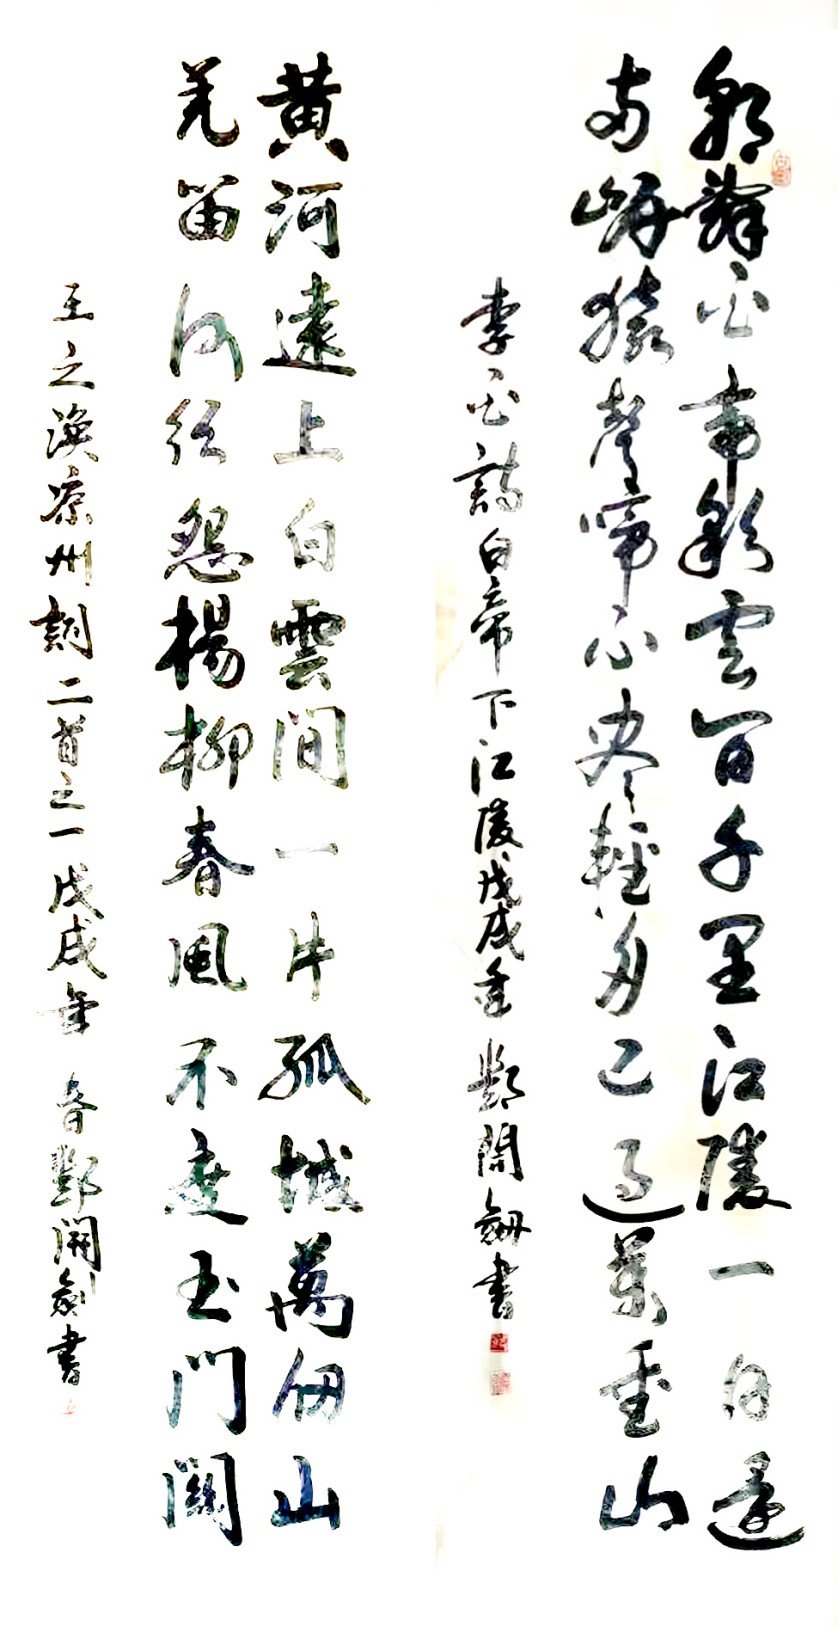 朝辭白帝彩雲間千里江陵一日還
兩岸猿聲啼不盡輕舟已過萬重山
李白詩白帝下江陵戊戌年酆開劍書
黃河遠上白雲間一片孤城萬仞山
羌笛何須怨楊柳春風不度玉門關
王之渙凉州詞二首之一戊戌年春酆開劍書